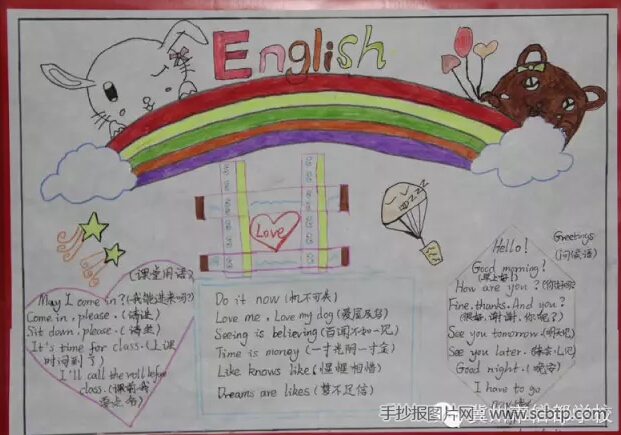 English
Love
(课堂用语)
May I come in? (我能进来吗?)
Come in, please. (请进)
Sit down, please. (请坐)
It's time for class. (上课
时间到了)
I'll call the roll before
class. (课前我
要点名)
Do it now (机不可失)
Love me, Love my dog (爱屋及乌)
Seeing is believing (百闻不如一见)
Time is money (一寸光阴一寸金)
Like knows like (惺惺相惜)
Dreams are likes (梦不足信)
Greetings
(问候语)
Hello!
Good morning!
(早上好!)
How are you? (你好吗?)
Fine, thanks. And you?
(很好,谢谢,你呢?)
See you tomorrow. (明天见)
See you later. (待会儿见)
Good night. (晚安)
I have to go
now
手抄报图片网-www.scbtp.com